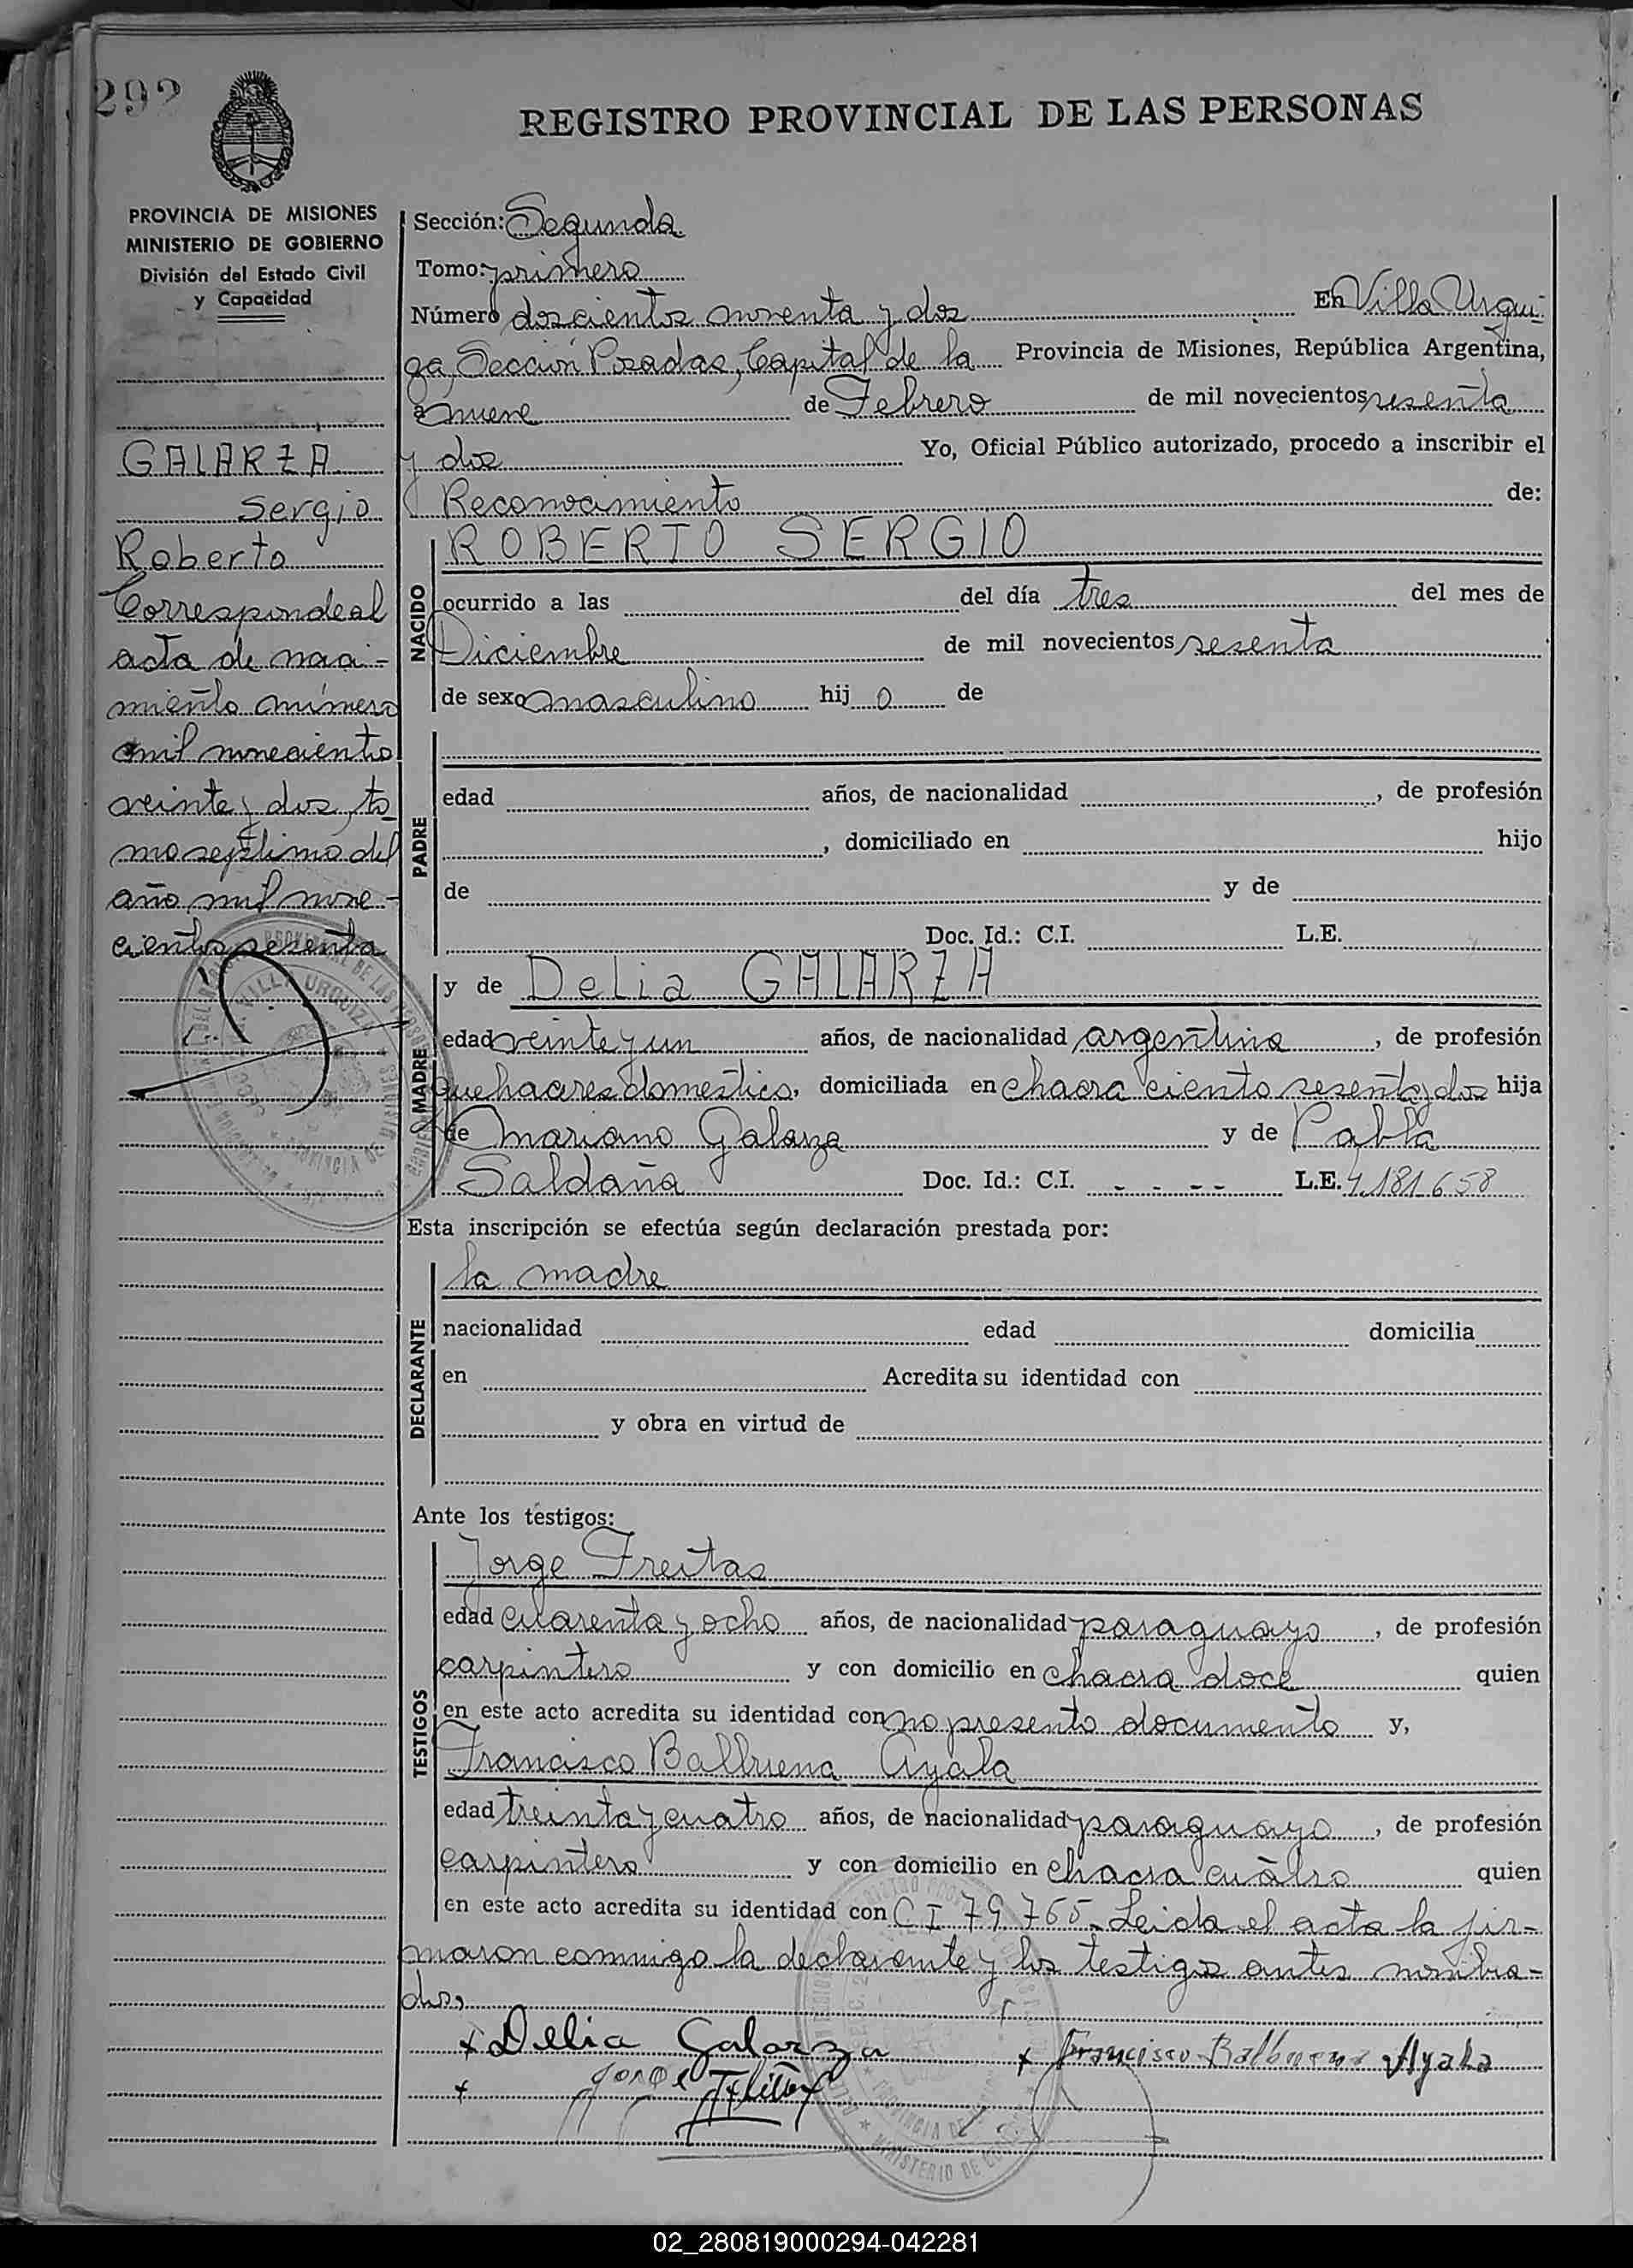 292
REGISTRO PROVINCIAL DE LAS PERSONAS
PROVINCIA DE MISIONES
MINISTERIO DE GOBIERNO
División del Estado Civil
y Capacidad
GALARZA
Sergio
Roberto
Corresponde al
acta de naci-
miento número
mil novecientos
veinte y dos, to
mo septimo del
año mil nove-
cientos sesenta
Sección: Segunda
Tomo: primero
Número doscientos noventa y dos En Villa Urqui-
za, Sección Posadas, Capital de la Provincia de Misiones, República Argentina,
a nueve de Febrero de mil novecientos sesenta
y dos Yo, Oficial Público autorizado, procedo a inscribir el
Reconocimiento de:
NACIDO
ROBERTO SERGIO
ocurrido a las del día tres del mes de
Diciembre de mil novecientos sesenta
de sexo masculino hijo de
PADRE
edad años, de nacionalidad , de profesión
, domiciliado en hijo
de y de
Doc. Id.: C.I. L.E.
MADRE
y de Delia GALARZA
edad veinte y un años, de nacionalidad argentina, de profesión
quehaceres domestico, domiciliada en chacra ciento sesenta y dos hija
de Mariano Galarza y de Pabla
Saldaña Doc. Id.: C.I. - - - - L.E. 4.181.658
Esta inscripción se efectúa según declaración prestada por:
DECLARANTE
la madre
nacionalidad edad domicilia
en Acredita su identidad con
y obra en virtud de
Ante los testigos:
TESTIGOS
Jorge Freitas
edad cuarenta y ocho años, de nacionalidad paraguayo, de profesión
carpintero y con domicilio en chacra doce quien
en este acto acredita su identidad con no presento documento y,
Francisco Balbuena Ayala
edad treinta y cuatro años, de nacionalidad paraguayo, de profesión
carpintero y con domicilio en chacra cuatro quien
en este acto acredita su identidad con C I 79.765- Leida el acta la fir-
maron conmigo la declarante y los testigos antes nombra-
dos,
x Delia Galarza x Francisco Balbuena Ayala
x Jorge
02_280819000294-042281